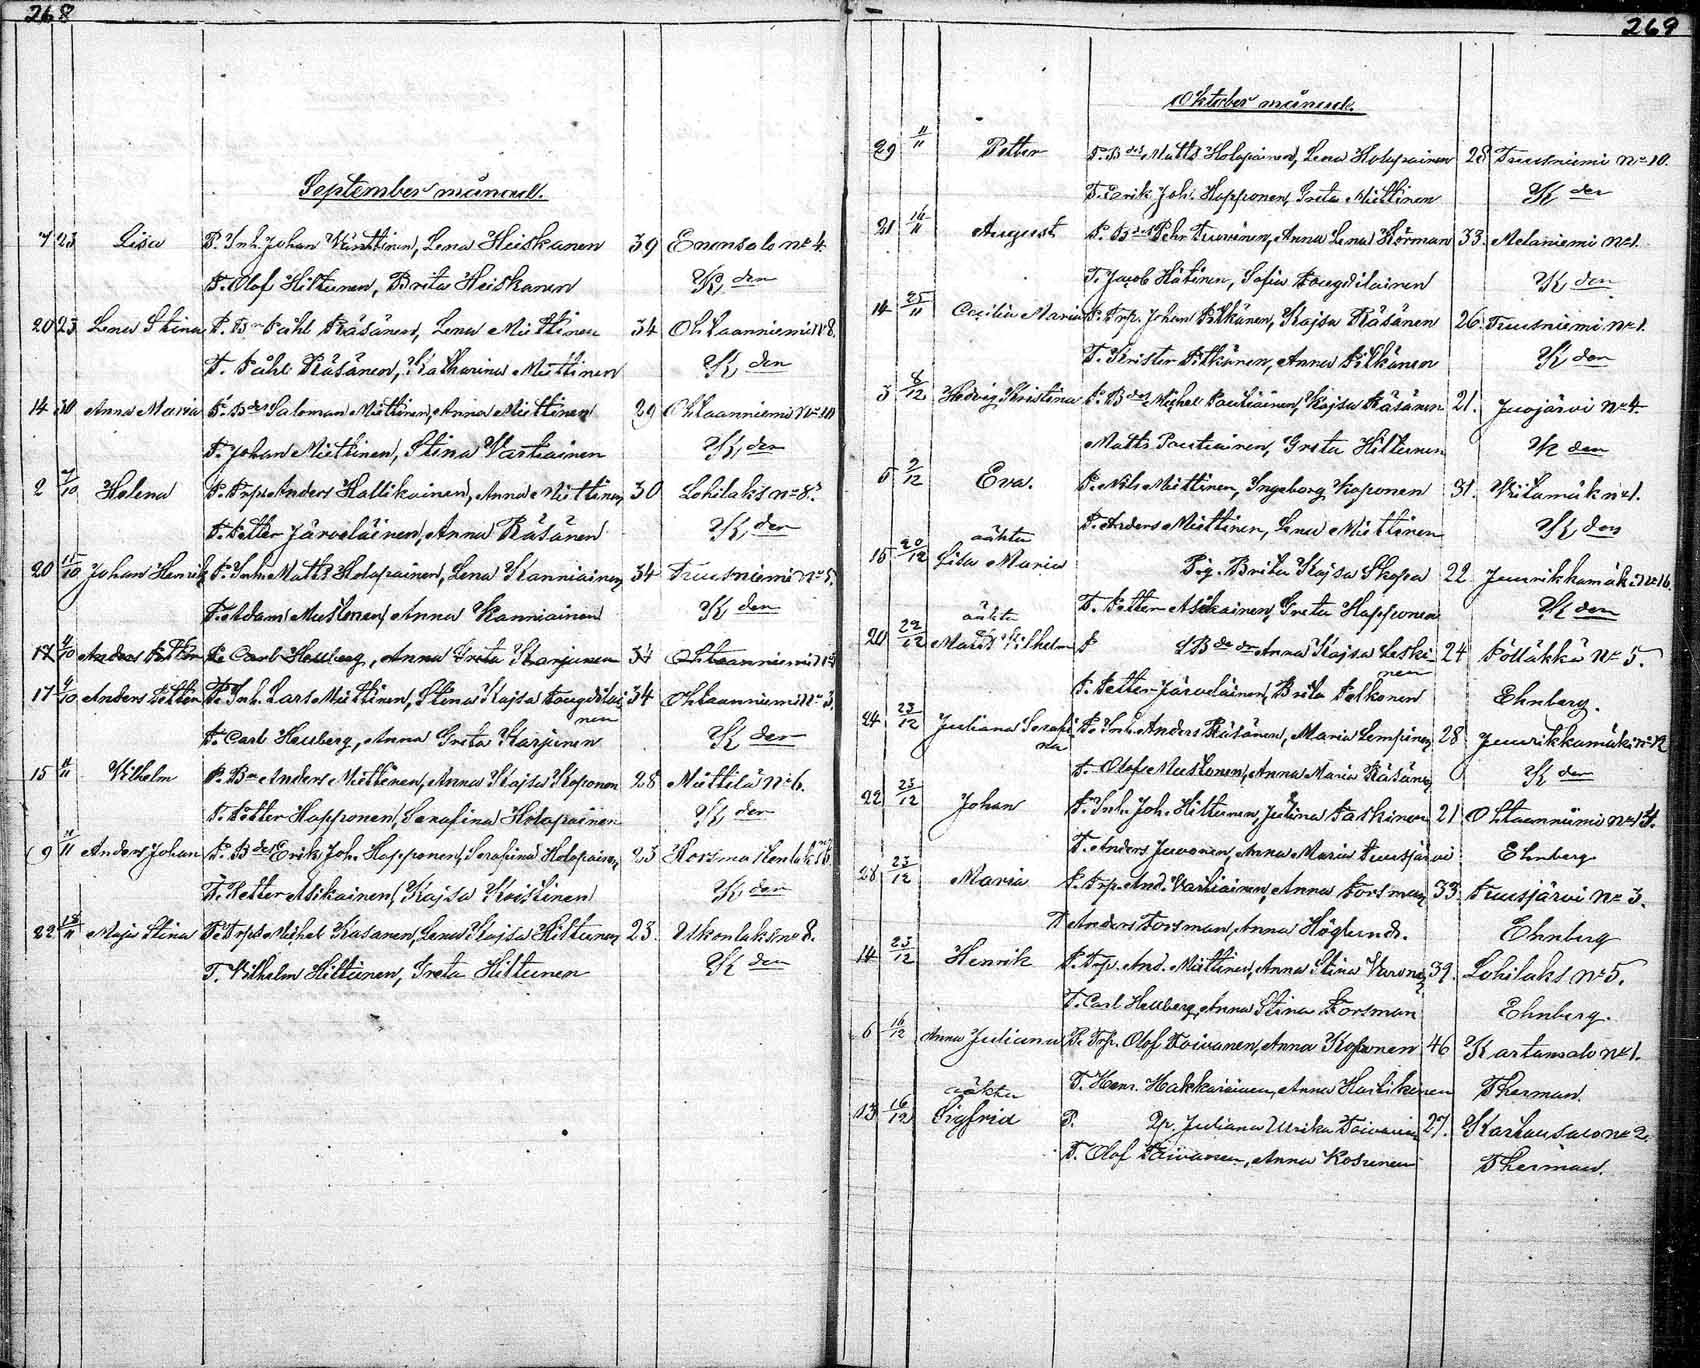 268
September månad.
7 23 Lisa P. Inh. Johan Vänttinen, Lena Heiskanen 39 Enonsalo No 4.
T. Olof Hiltunen, Brita Heiskanen K den
20 23 Lena Stina P. Bn Påhl Räsänen, Lena Miettinen 34 Ohtaanniemi No 8.
T. Påhl Räsänen, Katharina Miettinen K den
14 30 Anna Maria P. Bdes Saloman Miettinen, Anna Miettinen 29 Ohtaanniemi No 10
T. Johan Miettinen, Stina Vartiainen K den
2 7/10 Helena P. Trp. Anders Hallikainen, Anna Miettinen 30 Lohilaks No 8.
T. Petter Järveläinen, Anna Räsänen K den
20 15/10 Johan Henrik P. Inh. Matts Holopainen, Lena Kanniainen 34 Tuusniemi No 5.
T. Adam Mustonen, Anna Kanniainen K den
17 /10 Anders Petter P. Carl Heuberg, Anna Greta Karjunen 34 Ohtaanniemi No
17 /10 Anders Petter P. Inh. Lars Miettinen, Stina Kajsa Tougdilai- 34 Ohtaanniemi No 3.
nen
T. Carl Heuberg, Anna Greta Karjunen K den
15 /11 Vilhelm P. Bn Anders Miettinen, Anna Kajsa Koponen 28 Miettilä No 6.
T. Petter Happonen, Serafina Holopainen K den
9 11/11 Anders Johan P. Bdes Erik Joh. Happonen, Serafina Holopainen 23
T. Petter Asikainen, Kajsa Koistinen K den
22 18/11 Maja Stina P. Trp. Michel Kasanen, Lena Kajsa Hiltunen 23. Ukonlaks No 8.
T. Vilhelm Hiltunen, Greta Hiltunen K den
269
Oktober månad.
29 11/11 Petter P. Bdes Matts Holopainen, Lena Holopainen 28 Tuusniemi No 10.
T. Erik Joh. Happonen, Greta Miettinen K den
21 16/11 August P. Bdes Pehr Tuovinen, Anna Lena Hörman 33. Melaniemi No 1.
T. Jacob Hätinen, Sofia Tougdilainen K den
14 25/11 Cecilia Maria P. Trp. Johan Pitkänen, Kajsa Räsänen 26. Tuusniemi No 1.
T. Krister Pitkänen, Anna Pitkänen K den
3 8/12 Hedvig Kristina P. Bdes Michel Pautiainen, Kajsa Räsänen 21. Juojärvi No 4
Matts Pautiainen, Greta Hiltunen K den
5 9/12 Eva. P. Nils Miettinen, Ingeborg Koponen 31. Viitamäk No 1.
T. Anders Miettinen, Lena Miettinen K den
oäkta
15 20/12 Lisa Maria Pig. Brita Kajsa Skopa 22 Juurikkamäki No 16.
T. Petter Asikainen, Greta Happonen K den
oäkta
20 22/12 Matts Vilhelm P Bde dr Anna Kajsa Leski- 24 Pölläkkä No 5.
nen
T. Petter Järveläinen, Brita Pelkonen Ehnberg.
24 23/12 Juliana Serafi- P. Inh. Anders Räsänen, Maria Lempinen 28 Juurikkamäki No 12
na
T. Olof Mustonen, Anna Maria Räsänen K den
22 23/12 Johan P. Inh. Joh. Hiltunen, Justina Paskinen 21 Ohtaanniemi No 14.
T. Anders Juvonen, Anna Maria Tuusjärvi Ehnberg
28 23/12 Maria P. Trp. And. Vartiainen, Anna Forsman 33. Tuusjärvi No 3.
T Anders Forsman, Anna Höglund. Ehnberg
14 23/12 Henrik P. Trp. And. Miettinen, Anna Stina Varonen 39. Lohilaks No 5.
T. Carl Heuberg, Anna Stina Forsman Ehnberg.
6 16/12 Anna Juliana P. Trp. Olof Toivanen, Anna Koponen 46 Kartansalo No 1.
T. Henr. Hakkarainen, Anna Therman.
oäkta
13 16/12 Sigfrid P. Pp. Juliana Ulrika Toivanen 27. Kartansalo No 2.
T. Olof Toivanen, Anna Kosunen Therman.